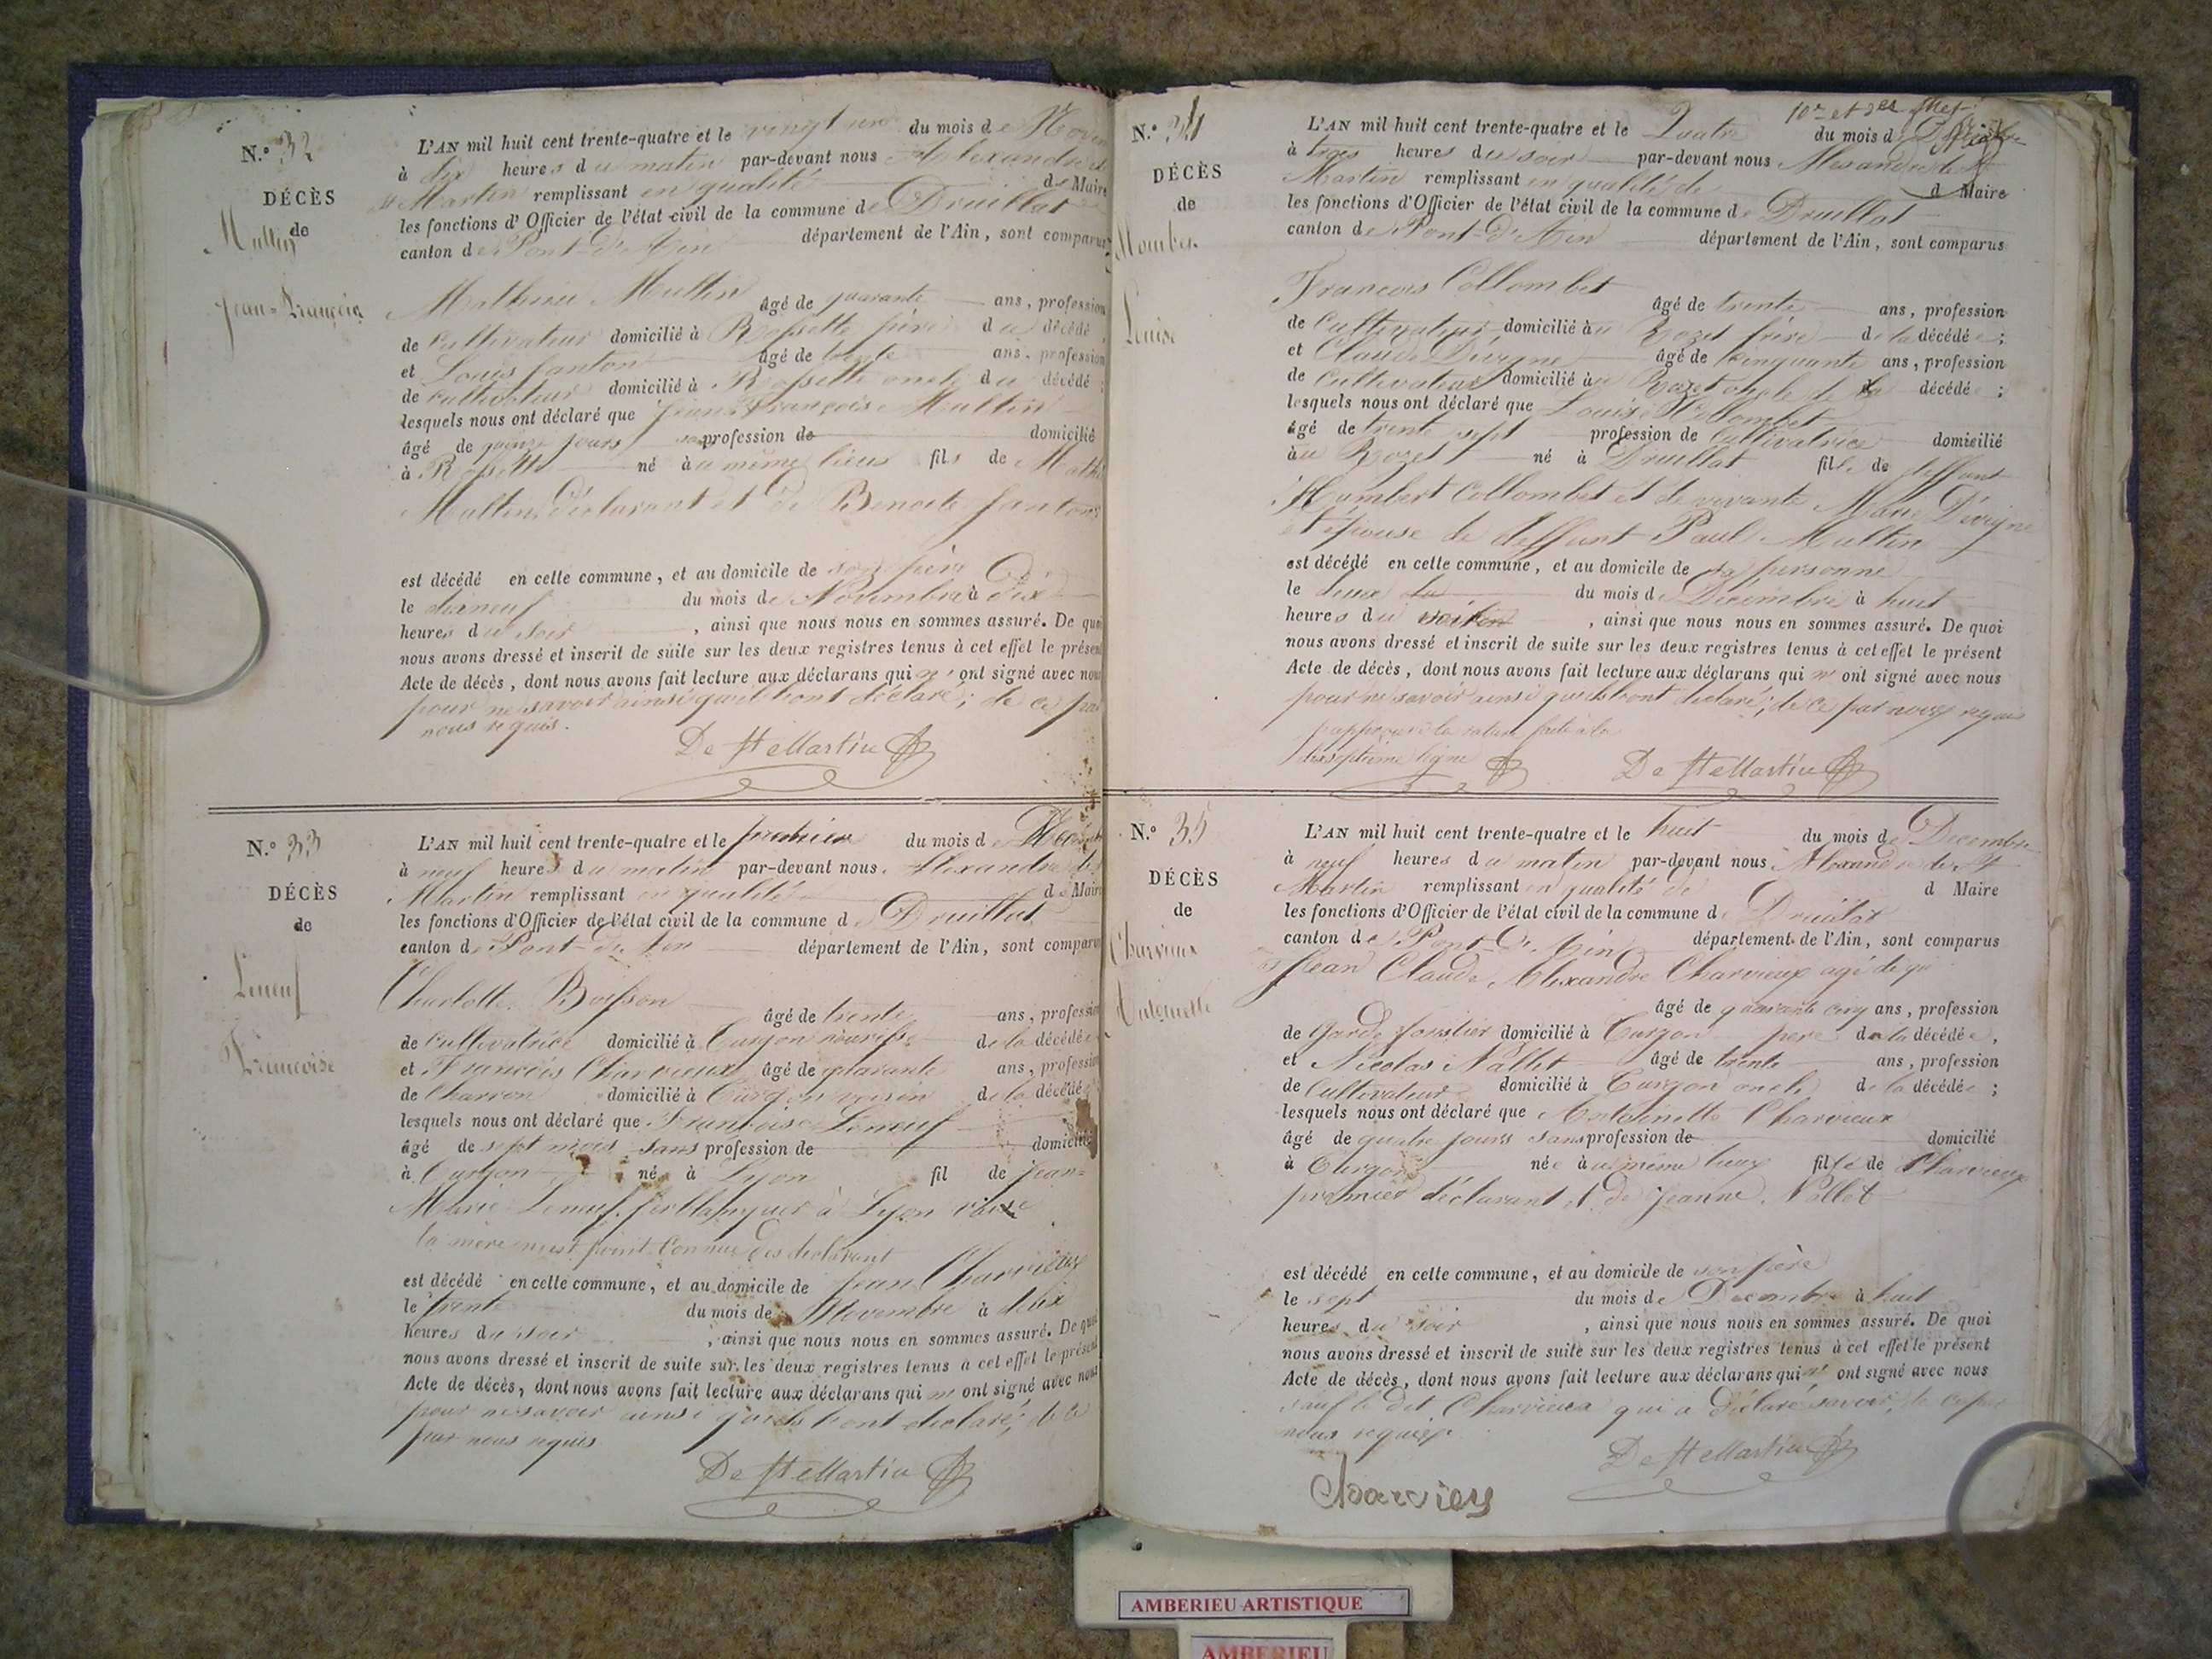 N.º 32
DÉCÈS
de
Multin
Jean-François
L'AN mil huit cent trente-quatre et le vingt un du mois de Nov
à dix heures du matin par-devant nous Alexandre de
St Martin remplissant en qualité de Maire
les fonctions d'Officier de l'état civil de la commune de Druillat
canton de Pont-d'Ain département de l'Ain, sont comparus
Mathieu Multin âgé de quarante ans, profession
de cultivateur domicilié à Rossette père du décédé
et Louis fanton âgé de trente ans, profession
de cultivateur domicilié à Rossette oncle du décédé ;
lesquels nous ont déclaré que Jean François Multin
âgé de quinze jours sans profession de domicilié
à Rossette né au même lieux fils de Math
Multin déclarant et de Benoite fanton
est décédé en cette commune, et au domicile de son père
le dixneuf du mois de Novembre à dix
heures du soir , ainsi que nous nous en sommes assuré. De quoi
nous avons dressé et inscrit de suite sur les deux registres tenus à cet effet le présent
Acte de décès, dont nous avons fait lecture aux déclarans qui n'ont signé avec nous
pour ne savoir ainsi qu'ils l'ont déclaré ; de ce par
nous requis.
De St Martin
N.º 33
DÉCÈS
de
Leneuf
Françoise
L'AN mil huit cent trente-quatre et le premier du mois de
à neuf heures du matin par-devant nous Alexandre de St
Martin remplissant en qualité de Maire
les fonctions d'Officier de l'état civil de la commune d Druillat
canton de Pont-d'Ain département de l'Ain, sont comparus
Charlotte Boisson âgé de trente ans, profession
de cultivatrice domicilié à Turgon nourisse de la décédée
et François Charvieux âgé de quarante ans, profession
de Charron domicilié à Turgon voisin de la décédée
lesquels nous ont déclaré que Françoise Leneuf
âgé de sept mois sans profession de domicilié
à Turgon née à Lyon fil de jean-
Marie Leneuf ferblanquer à Lyon
la mère n'est point connue des déclarant
est décédé en cette commune, et au domicile de jean Charvieux
le trente du mois de Novembre à dix
heures du soir , ainsi que nous nous en sommes assuré. De quoi
nous avons dressé et inscrit de suite sur les deux registres tenus à cet effet le présent
Acte de décès, dont nous avons fait lecture aux déclarans qui n'ont signé avec nous
pour ne savoir ainsi qu'ils l'ont déclaré ; de ce
par nous requis
De St Martin
N.º 34
DÉCÈS
de
Louise
L'AN mil huit cent trente-quatre et le Quatre du mois d
à trois heures du soir par-devant nous Alexandre de St
Martin remplissant en qualité de d Maire
les fonctions d'Officier de l'état civil de la commune de Druillat
canton de Pont-d'Ain département de l'Ain, sont comparus
François Collombet âgé de trente ans, profession
de Cultivateur domicilié au Rozet frère de la décédée ;
et Claude Dévigne âgé de cinquante ans, profession
de Cultivateur domicilié au Rozet oncle de la décédé ;
lesquels nous ont déclaré que Louise Collombet
âgé de trente sept profession de Cultivatrice domicilié
au Rozet né à Druillat fille de deffunt
Humbert Collombet et de vivante Marie Dévigne
et épouse de deffunt Paul Multin
est décédé en cette commune, et au domicile de sa personne
le deux du mois de Décembre à huit
heures du , ainsi que nous nous en sommes assuré. De quoi
nous avons dressé et inscrit de suite sur les deux registres tenus à cet effet le présent
Acte de décès, dont nous avons fait lecture aux déclarans qui n'ont signé avec nous
pour ne savoir ainsi qu'ils l'ont déclaré ; de ce par nous requis
j'approuve la rature faite à la
dixseptième ligne
De St Martin
N.º 35
DÉCÈS
de
Charvieux
Antoinette
L'AN mil huit cent trente-quatre et le huit du mois de Decembre
à neuf heures du matin par-devant nous Alexandre de St
Martin remplissant en qualité de d Maire
les fonctions d'Officier de l'état civil de la commune de Druillat
canton de Pont-d'Ain département de l'Ain, sont comparus
Jean Claude Alexandre Charvieux agé de qu
âgé de quarante cinq ans, profession
de Garde forestier domicilié à Turgon père de la décédée,
et Nicolas Nallet âgé de trente ans, profession
de Cultivateur domicilié à Turgon oncle de la décédée ;
lesquels nous ont déclaré que Antoinette Charvieux
âgé de quatre jours sans profession de domicilié
à Turgon née au même lieux fille de Charvieux
premier déclarant et de Jeanne Nallet
est décédé en cette commune, et au domicile de son père
le sept du mois de Décembre à huit
heures du soir , ainsi que nous nous en sommes assuré. De quoi
nous avons dressé et inscrit de suite sur les deux registres tenus à cet effet le présent
Acte de décès, dont nous avons fait lecture aux déclarans qui n'ont signé avec nous
sauf le dit Charvieux qui a déclaré savoir, de ce par
nous requis.
De St Martin
AMBERIEU ARTISTIQUE
AMBERIEU